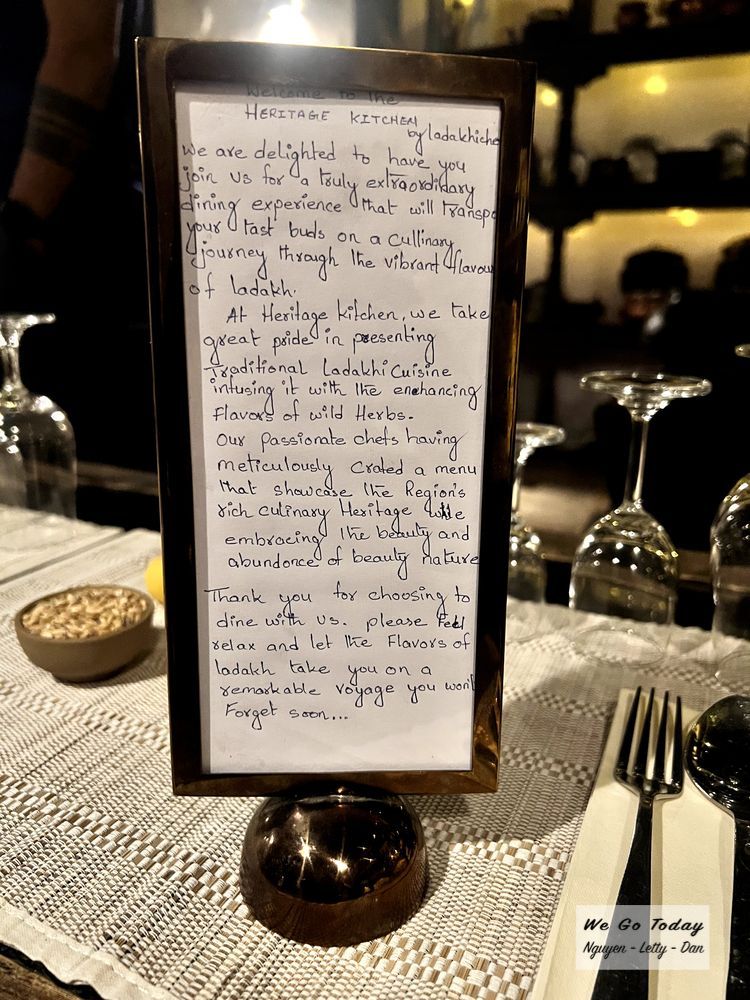 Welcome to the
HERITAGE KITCHEN
by ladakhiche
We are delighted to have you
join us for a truly extraordidary
dining experience that will transpo
your tast buds on a cullinary
journey through the vibrant flavou
of ladakh.
At Heritage kitchen, we take
great pride in presenting
Traditional Ladakhi Cuisine
infusing it with the enchancing
flavors of wild Herbs.
Our passionate chefs having
meticulously Crated a menu
that showcase the Region's
rich culinary Heritage while
embracing the beauty and
abundonce of beauty nature
Thank you for choosing to
dine with us. please Feel
relax and let the Flavors of
ladakh take you on a
remarkable voyage you won't
Forget soon...
We Go Today
Nguyen - Letty - Dan